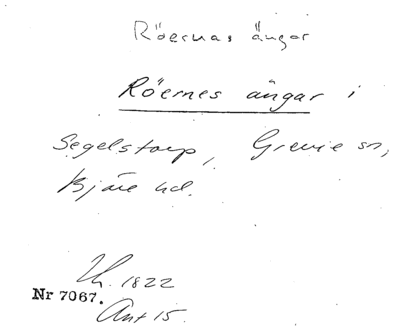 Röernas ängar
Röernes ängar i
Segelstorp, Grevie sn,
Bjäre hd.
Lh. 1822
Nr 7067.
Ant 15.